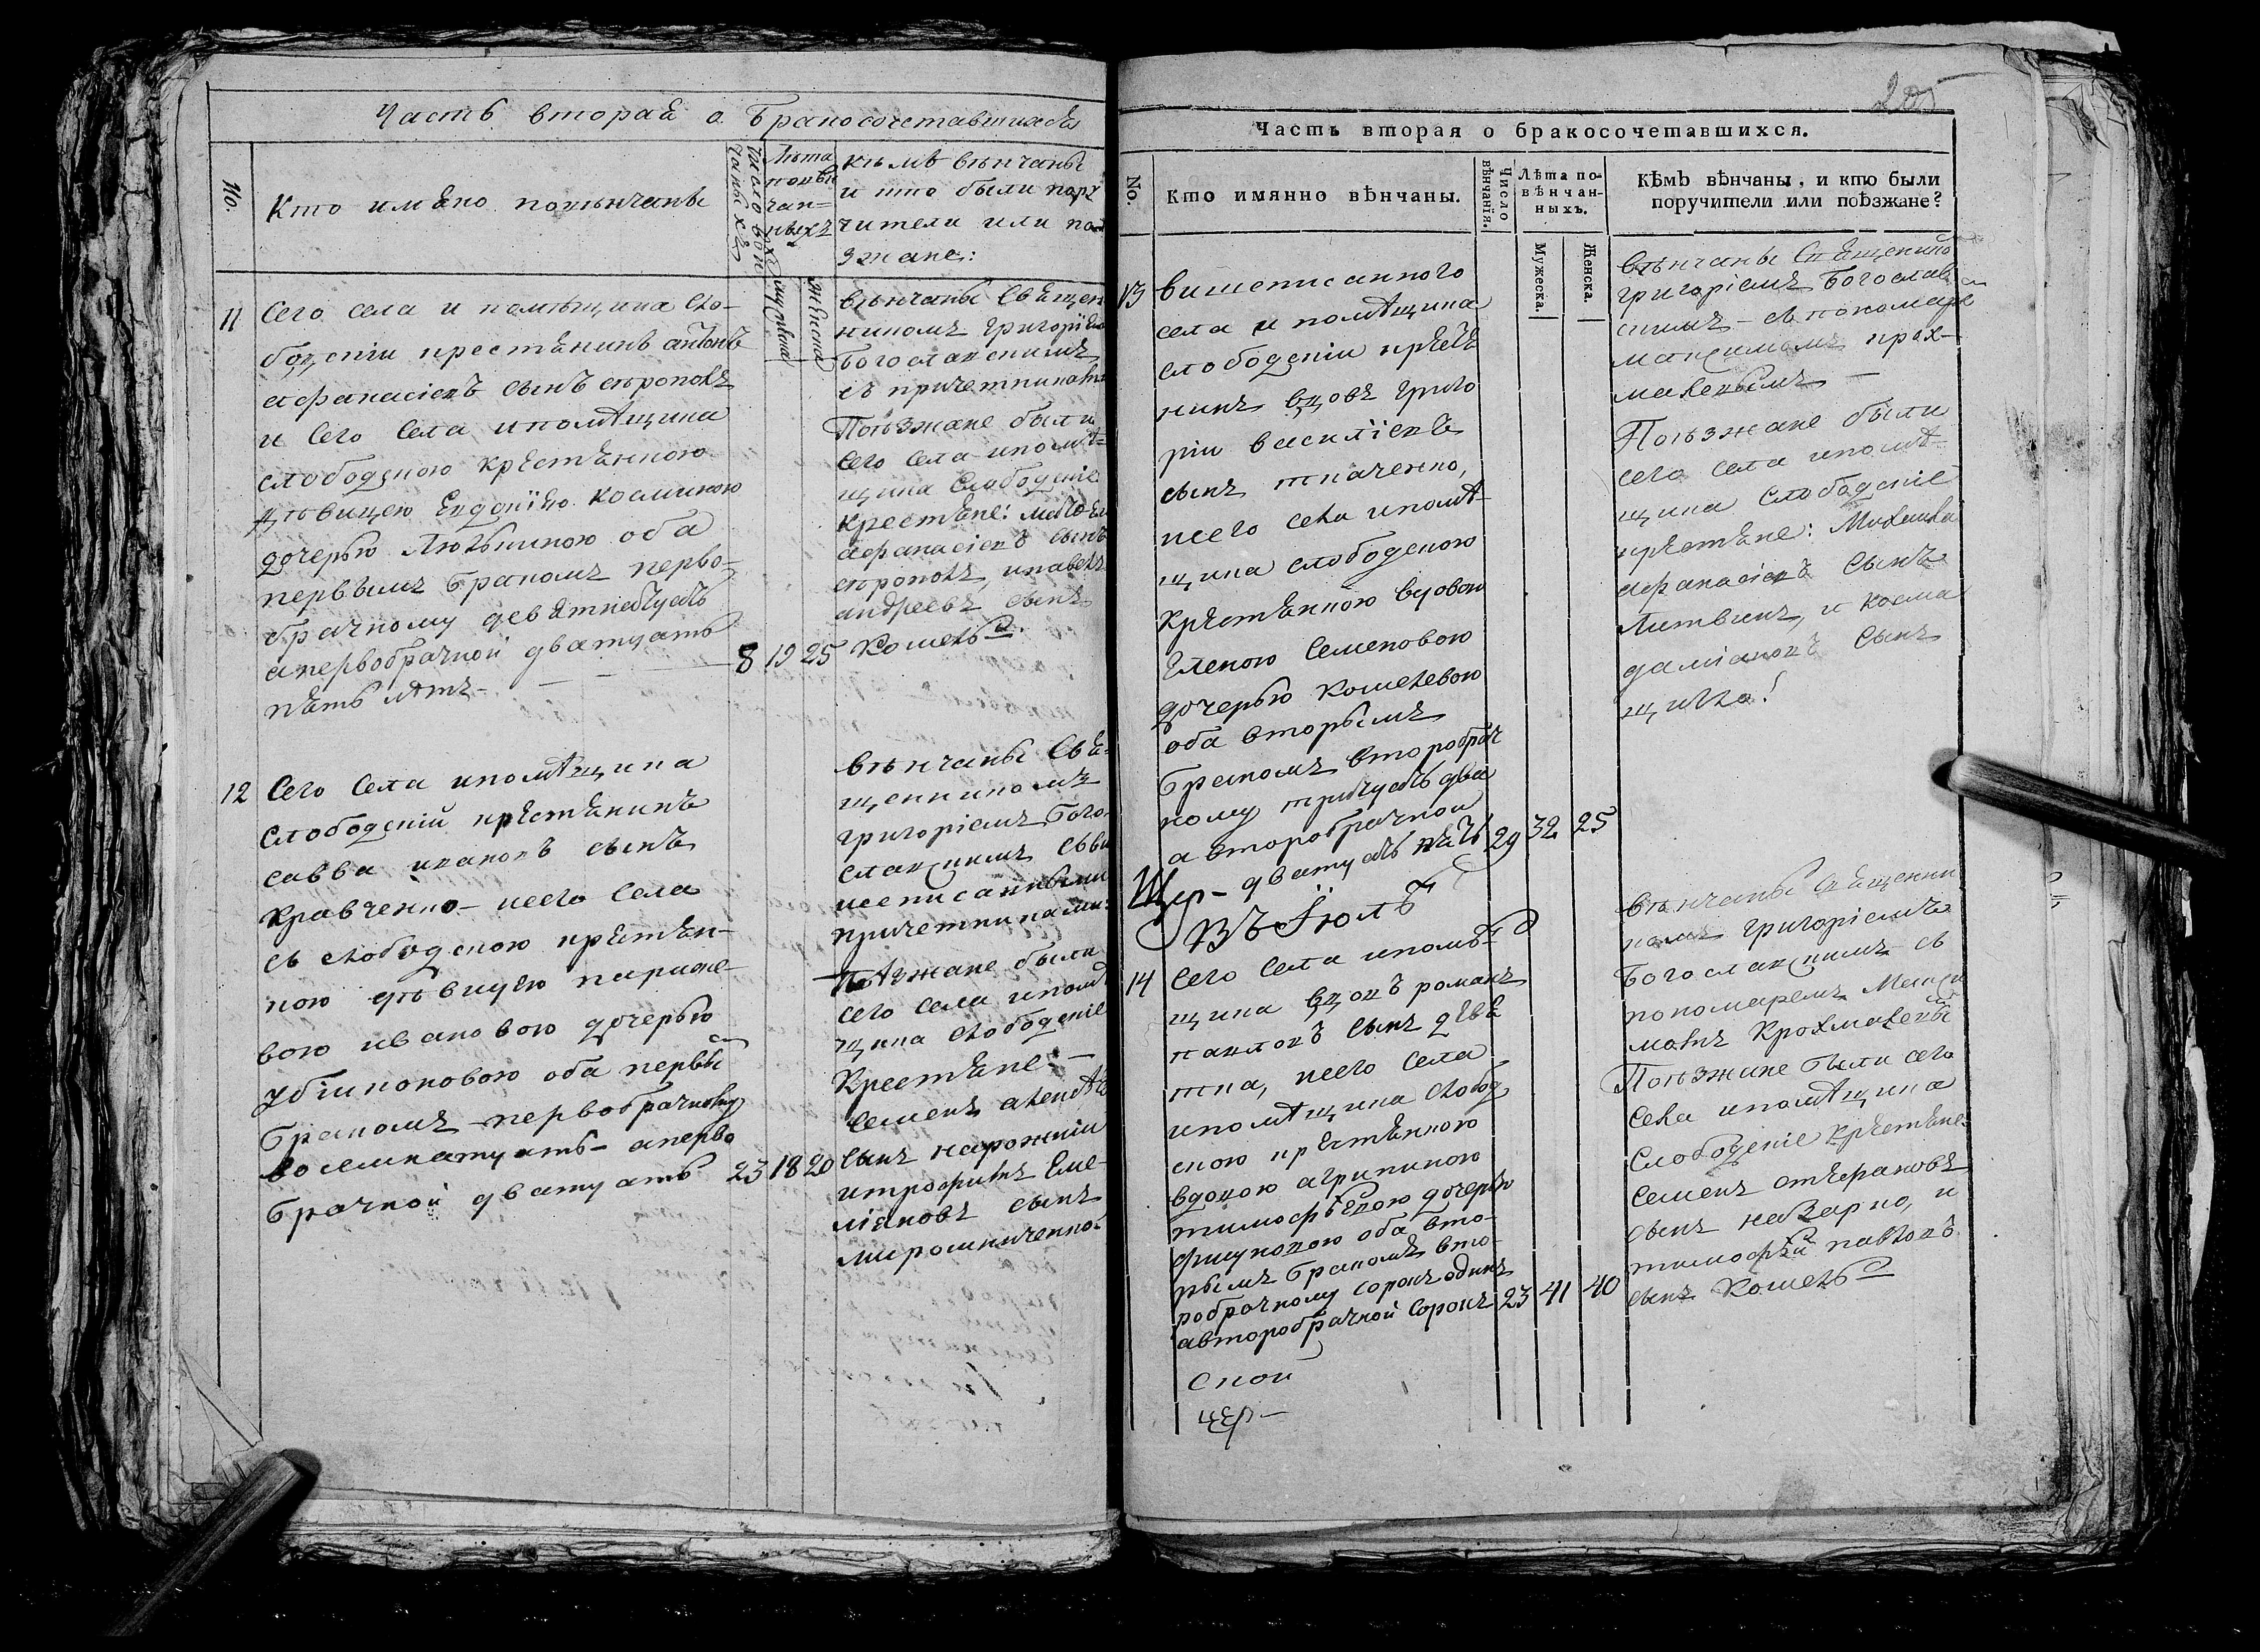 Часть вторая о Бракосочетавшихся
No.
Кто имяно повѣнчаны
Число вѣн
чаныхъ
Лѣта
повѣн
чан=
ныхъ
мужеска
женска
кѣмъ вѣнчаны
и кто были пору
чители или поѣ
зжане:
11
Сего села и помѣщика Сло-
бодскіи крестянинъ антонъ
афанасіевъ сынъ
и Сего Села ипомѣщика
слободскою крестянкою
дѣвицею Евдокіею космыною
дочерью оба
первымъ бракомъ перво-
брачному девятнатцать
апервобрачной дватцать
пять лѣтъ
8 19 25
вѣнчаны Священ
никомъ григоріемъ
Богославскимъ
съ причетниками
Поѣзжане были
Сего Села ипомѣ-
щика Слободскіе
крестяне:
афанасіевъ сынъ
ипавелъ
андреевъ сынъ
Кошель
12
Сего Села ипомѣщика
Слободскій крестянинъ
савва ивановъ сынъ
Кравченко исего Села
съ слободскою крестян-
кою дѣвицею
вою ивановою дочерью
оба первы
бракомъ первобрачному
восемнатцать аперво
брачной дватцать
23 18 20
вѣнчаны Свя-
щенникомъ
григоріемъ Бого-
славскимъ съвы
шеписанными
причетниками:
Поѣзжане были
сего села ипомѣ
щика слободскіе
Крестяне:
семенъ
сынъ
итрофимъ Еме-
ліяновъ сынъ
мирошниченко
205
Часть вторая о бракосочетавшихся.
No.
Кто имянно вѣнчаны.
Число
вѣнчанія.
Лѣта по-
вѣнчан-
ныхъ.
Мужеска.
Женска.
Кѣмъ вѣнчаны, и кто были
поручители или поѣзжане?
13
вишеписанного
села и помѣщика
слободскіи крестя
нинъ вдовъ григо
ріи василіевъ
сынъ ткаченко,
исего села ипомѣ
щика слободскою
крестянкою вдовою
Еленою Семеновою
дочерью кошелевою
оба вторымъ
бракомъ второбрач
ному тритцать два
а второбрачной
дватцать пять
29 32 25
вѣнчаны Священико
григоріемъ Богославъ
скимъ съ пономаре
максимомъ крох-
малевымъ
Поѣзжане были
сего села ипомѣ-
щика слободскіе
крестяне: Михаила
афанасіевъ Сынъ
Литвинъ, и косма
даміановъ Сынъ
Въ Іюлѣ
14
Сего Села ипомѣ-
щика вдовъ романъ
павловъ сынъ девя
тка, исего села
ипомѣщика слобод
скою крестянкою
вдовою агрипиною
тимофѣевою дочерью
оба вто-
рымъ бракомъ вто-
робрачному сорокъ одинъ
авторобрачной сорокъ
23 41 40
вѣнчаны Священни
комъ григоріемъ
Богославскимъ съ
пономаремъ Макси
момъ Крохмалевы
Поѣзжане были сего
Села ипомѣщика
Слободскіе крестяне
Семенъ
сынъ и
тимофѣй павловъ
сынъ Кошель
ской
цер-